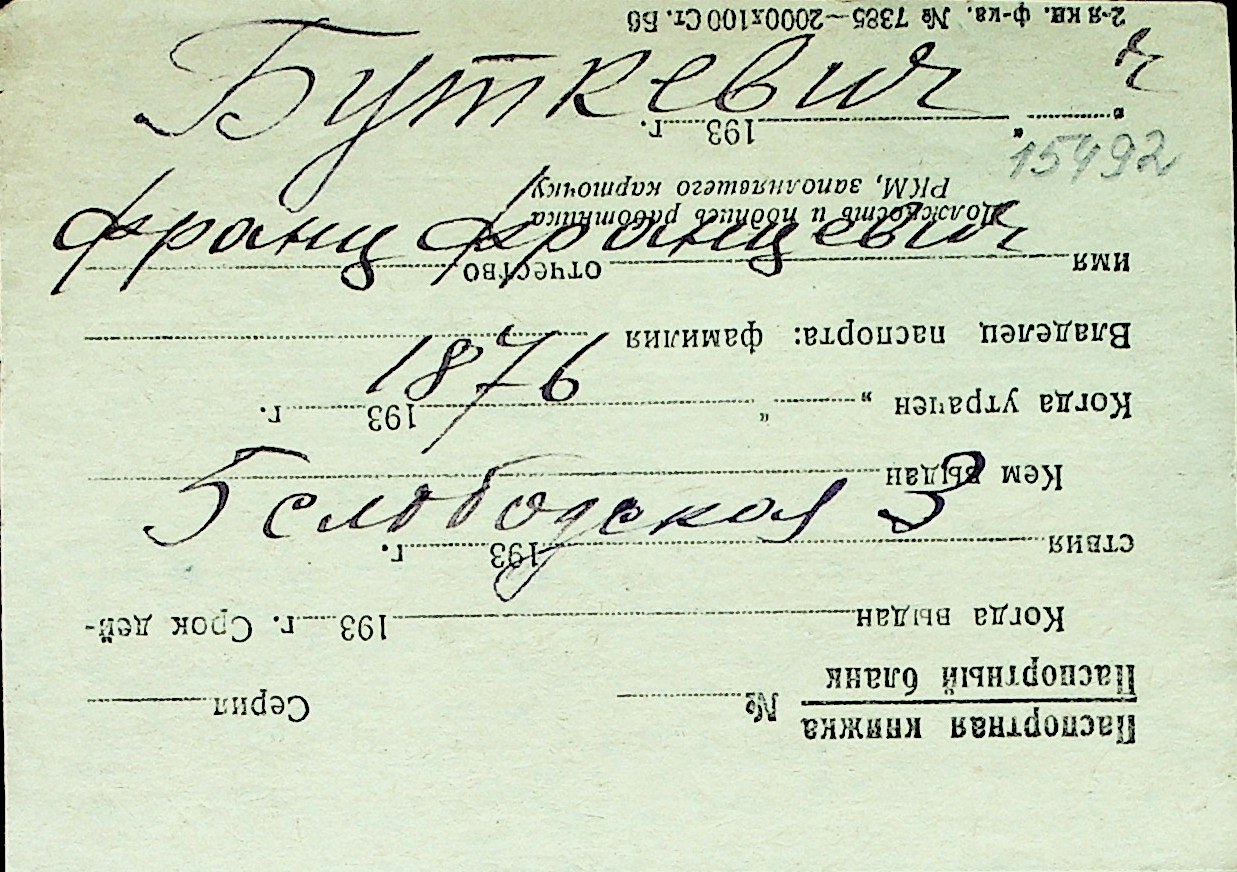 Буткевич ч
15492
Франц Францевич
1876
Б слободская 3
Паспортная книжка
Паспортный бланк № Серия
Когда выдан 193 г. Срок дей-
ствия 193 г.
Кем выдан
Когда утрачен „ “ 193 г.
Владелец паспорта: фамилия
имя отчество
Должность и подпись работника
РКМ, заполнявшего карточку
„ “ 193 г.
2-я кн. ф-ка. № 7385—2000х100 Ст. Бб